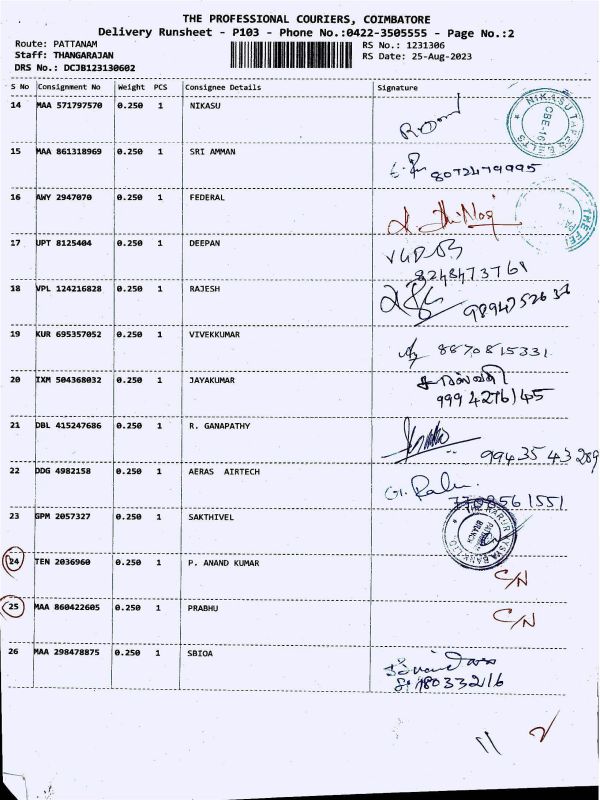 THE PROFESSIONAL COURIERS, COIMBATORE
Delivery Runsheet - P103 - Phone No.:0422-3505555 - Page No.:2
Route: PATTANAM RS No.: 1231306
Staff: THANGARAJAN RS Date: 25-Aug-2023
DRS No.: DCJB123130602
S No Consignment No Weight PCS Consignee Details Signature
14 MAA 571797570 0.250 1 NIKASU
NIKASU TAPES BELTS CBE-16
15 MAA 861318969 0.250 1 SRI AMMAN
8072479995
16 AWY 2947070 0.250 1 FEDERAL
THE FE
17 UPT 8125404 0.250 1 DEEPAN
8248473761
18 VPL 124216828 0.250 1 RAJESH
19 KUR 695357052 0.250 1 VIVEKKUMAR
8870815331
20 IXM 504368032 0.250 1 JAYAKUMAR
9994276145
21 DBL 415247686 0.250 1 R. GANAPATHY
9943543289
22 DDG 4982158 0.250 1 AERAS AIRTECH
7708561551
23 GPM 2057327 0.250 1 SAKTHIVEL
THE KARUR VYSYA BANK LTD BRANCH
24 TEN 2036960 0.250 1 P. ANAND KUMAR C/N
25 MAA 860422605 0.250 1 PRABHU C/N
26 MAA 298478875 0.250 1 SBIOA